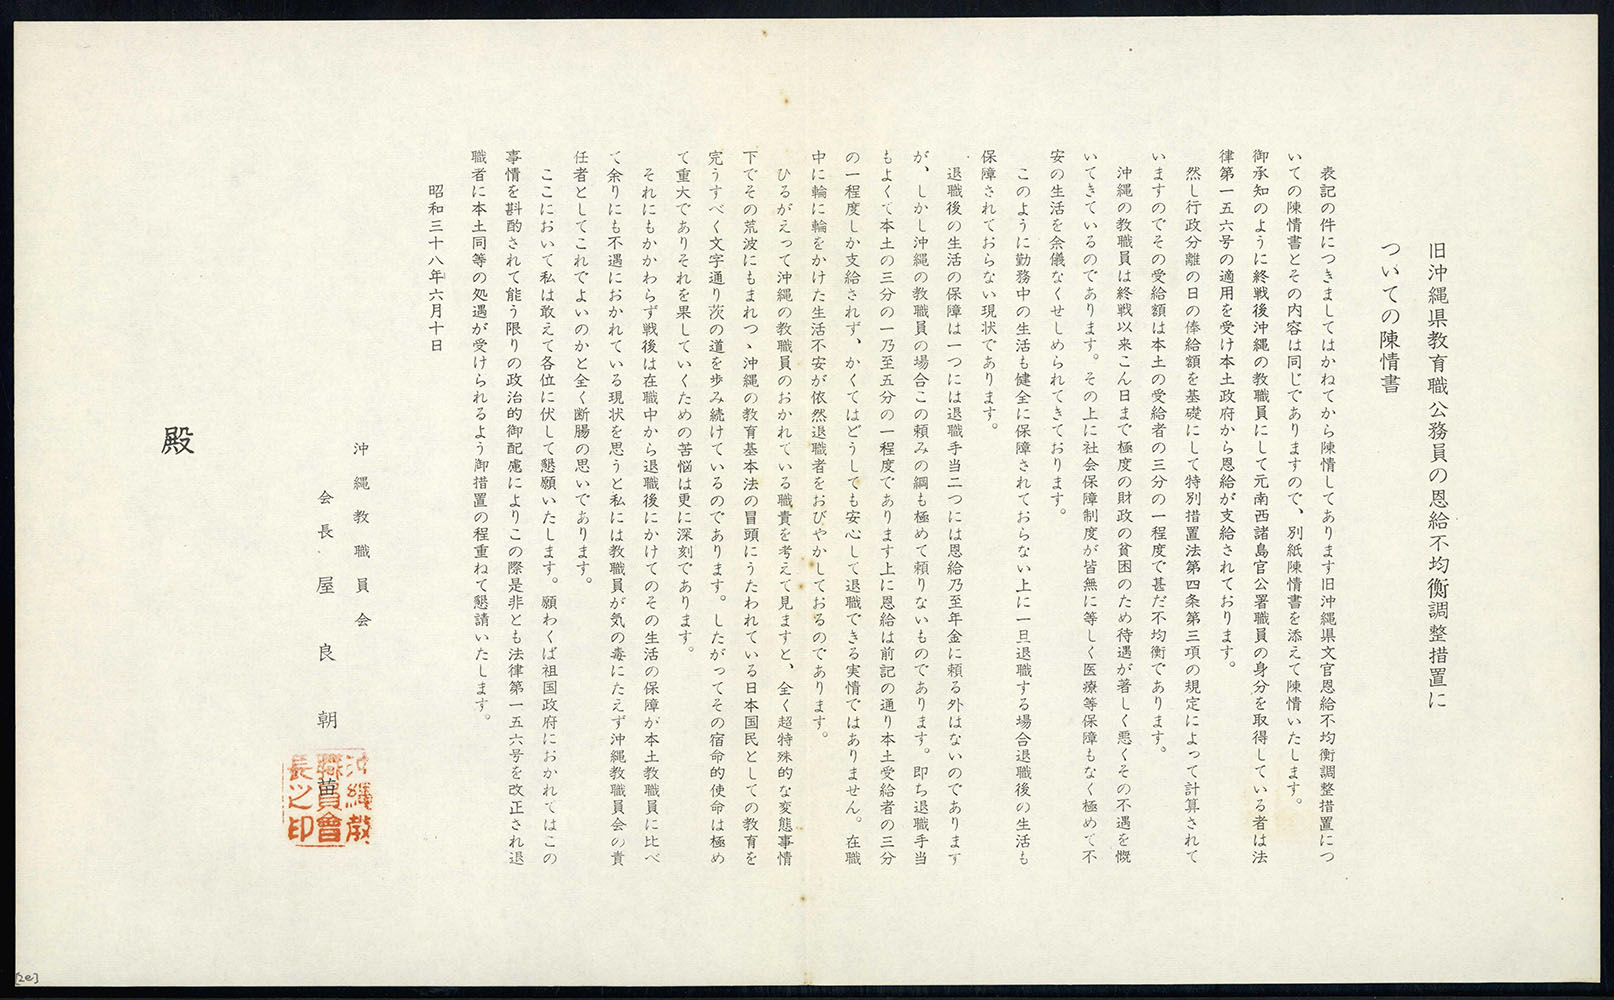 旧沖縄県教育職公務員の恩給不均衡調整措置に
ついての陳情書
表記の件につきましてはかねてから陳情してあります旧沖縄県文官恩給不均衡調整措置につ
いての陳情書とその内容は同じでありますので、別紙陳情書を添えて陳情いたします。
御承知のように終戦後沖縄の教職員にして元南西諸島官公署職員の身分を取得している者は法
律第一五六号の適用を受け本土政府から恩給が支給されております。
然し行政分離の日の俸給額を基礎にして特別措置法第四条第三項の規定によって計算されて
いますのでその受給額は本土の受給者の三分の一程度で甚だ不均衡であります。
沖縄の教職員は終戦以来こん日まで極度の財政の貧困のため待遇が著しく悪くその不遇を慨
いてきているのであります。その上に社会保障制度が皆無に等しく医療等保障もなく極めて不
安の生活を余儀なくせしめられてきております。
このように勤務中の生活も健全に保障されておらない上に一旦退職する場合退職後の生活も
保障されておらない現状であります。
退職後の生活の保障は一つには退職手当二つには恩給乃至年金に頼る外はないのであります
が、しかし沖縄の教職員の場合この頼みの綱も極めて頼りないものであります。即ち退職手当
もよくて本土の三分の一乃至五分の一程度であります上に恩給は前記の通り本土受給者の三分
の一程度しか支給されず、かくてはどうしても安心して退職できる実情ではありません。在職
中に輪に輪をかけた生活不安が依然退職者をおびやかしておるのであります。
ひるがえって沖縄の教職員のおかれている職責を考えて見ますと、全く超特殊的な変態事情
下でその荒波にもまれつゝ沖縄の教育基本法の冒頭にうたわれている日本国民としての教育を
完うすべく文字通り茨の道を歩み続けているのであります。したがってその宿命的使命は極め
て重大でありそれを果していくための苦悩は更に深刻であります。
それにもかかわらず戦後は在職中から退職後にかけてのその生活の保障が本土教職員に比べ
て余りにも不遇におかれている現状を思うと私には教職員が気の毒にたえず沖縄教職員会の責
任者としてこれでよいのかと全く断腸の思いであります。
ここにおいて私は敢えて各位に伏して懇願いたします。願わくば祖国政府におかれてはこの
事情を斟酌されて能う限りの政治的御配慮によりこの際是非とも法律第一五六号を改正され退
職者に本土同等の処遇が受けられるよう御措置の程重ねて懇請いたします。
昭和三十八年六月十日
沖縄教職員会
会長 屋良朝苗
沖縄教
職員會
長之印
殿
[2e]